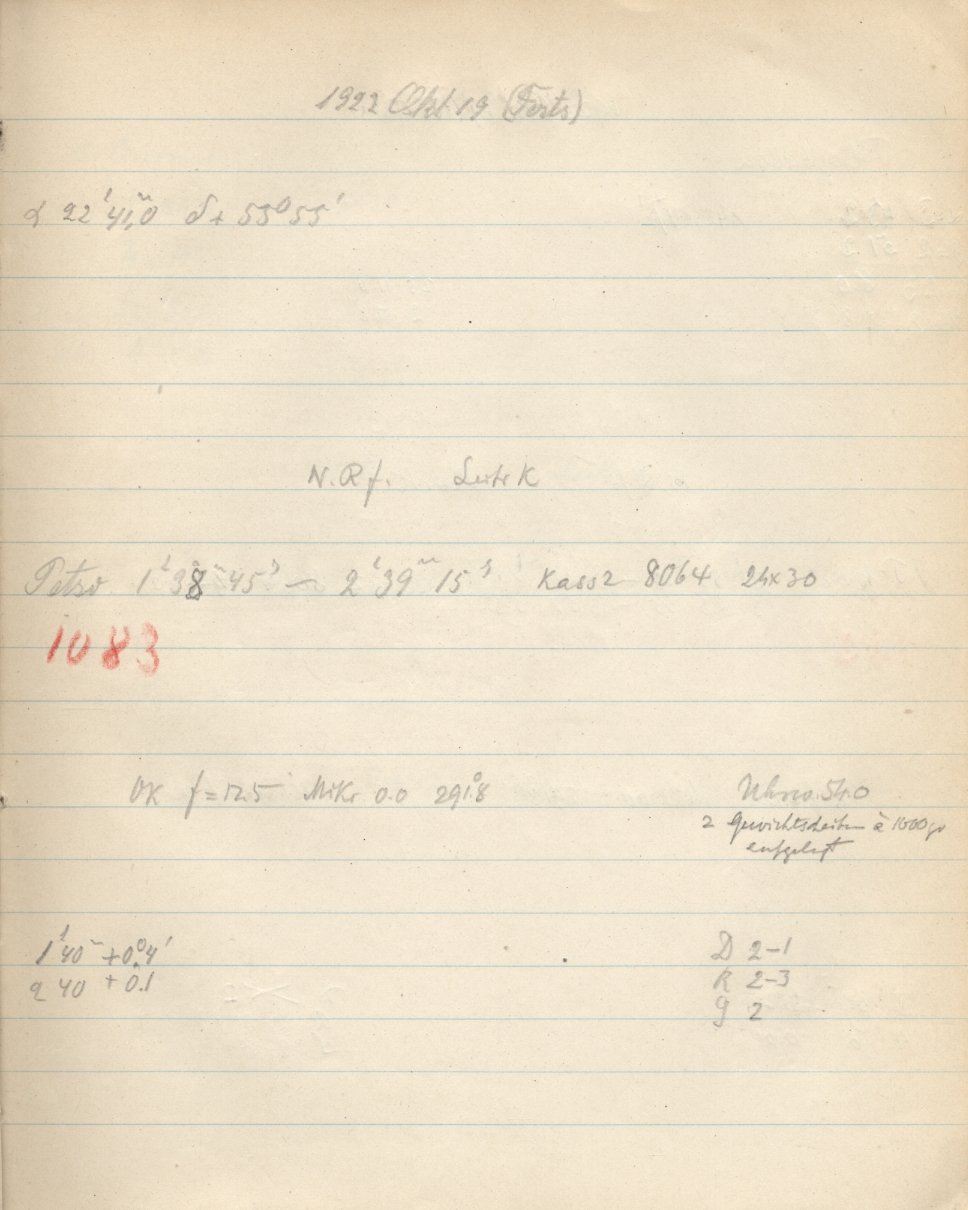 1922 Okt 19 (Forts)
α 22ʰ 41,ᵐ0 δ + 55° 55'
N.R f. Leitr K
Petzv 1ʰ 38ᵐ 45ˢ — 2ʰ 39ᵐ 15ˢ Kass 2 8064 24x30
1083
OK f = 12.5 Mikr 0.0 291.°8
Uhrw. 54.0
2 Gewichtscheiben à 1000 gr
aufgelegt
1ʰ 40ᵐ + 0.°4
2 40 + 0.1
D 2-1
R 2-3
g 2